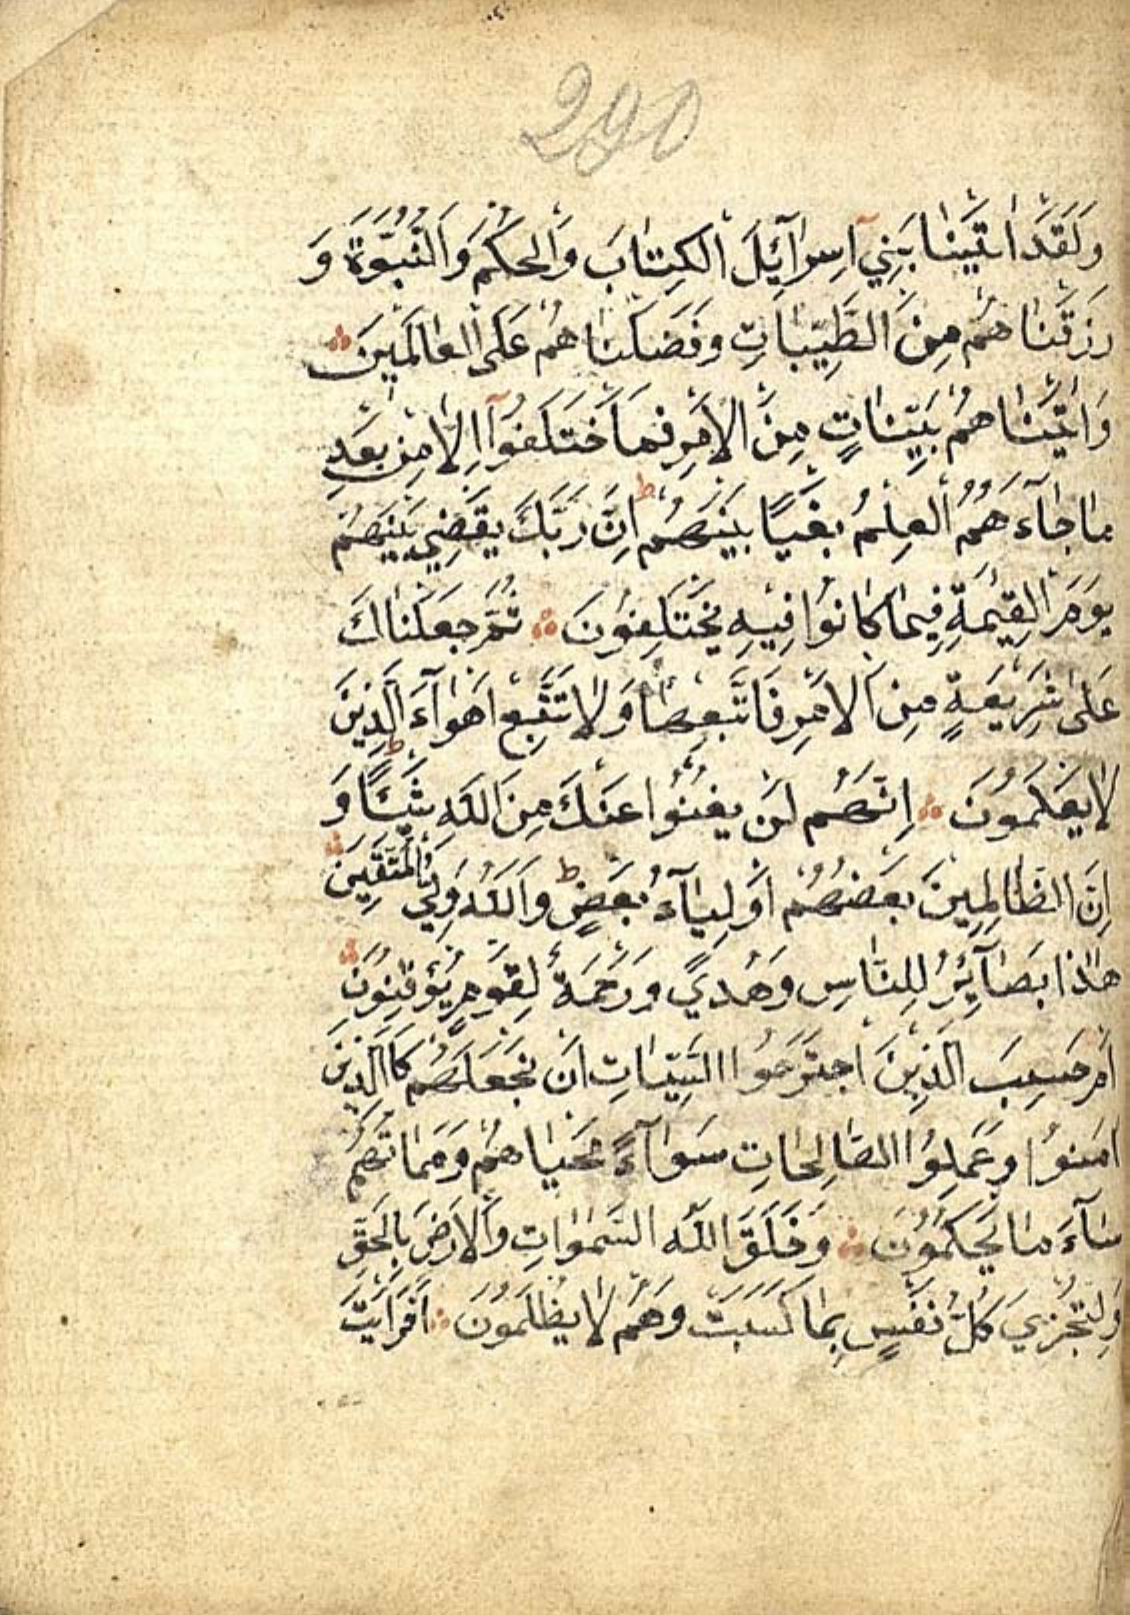 290
وَلَقَدْ اٰتَيْنَا بَنِيٓ اِسْرَآئِلَ الْكِتَابَ وَالْحُكْمَ وَالنُّبُوَّةَ وَ
رَزَقْنَاهُمْ مِنَ الطَّيِّبَاتِ وَفَضَّلْنَاهُمْ عَلَى الْعَالَمِينَ
وَاٰتَيْنَاهُمْ بَيِّنَاتٍ مِنَ الْاَمْرِ فَمَا اخْتَلَفُوٓا اِلَّا مِنْ بَعْدِ
مَا جَآءَهُمُ الْعِلْمُ بَغْيًا بَيْنَهُمْ ط اِنَّ رَبَّكَ يَقْضِي بَيْنَهُمْ
يَوْمَ الْقِيٰمَةِ فِيمَا كَانُوا فِيهِ يَخْتَلِفُونَ ثُمَّ جَعَلْنَاكَ
عَلٰى شَرِيعَةٍ مِنَ الْاَمْرِ فَاتَّبِعْهَا وَلَا تَتَّبِعْ اَهْوَآءَ الَّذِينَ
لَا يَعْلَمُونَ اِنَّهُمْ لَنْ يُغْنُوا عَنْكَ مِنَ اللّٰهِ شَيْئًا ط وَ
اِنَّ الظَّالِمِينَ بَعْضُهُمْ اَوْلِيَآءُ بَعْضٍ ط وَاللّٰهُ وَلِيُّ الْمُتَّقِينَ
هٰذَا بَصَآئِرُ لِلنَّاسِ وَهُدًي وَرَحْمَةٌ لِقَوْمٍ يُوْقِنُونَ
اَمْ حَسِبَ الَّذِينَ اجْتَرَحُوا السَّيِّاٰتِ اَنْ نَجْعَلَهُمْ كَاالَّذِينَ
اٰمَنُوا وَعَمِلُوا الصَّالِحَاتِ سَوَآءً مَحْيَاهُمْ وَمَمَاتُهُمْ
سَآءَ مَا يَحْكُمُونَ وَخَلَقَ اللّٰهُ السَّمٰوَاتِ وَالْاَرْضَ بِالْحَقِّ
وَلِتُجْزٰيَ كُلُّ نَفْسٍ بِمَا كَسَبَتْ وَهُمْ لَا يُظْلَمُونَ اَفَرَاَيْتَ